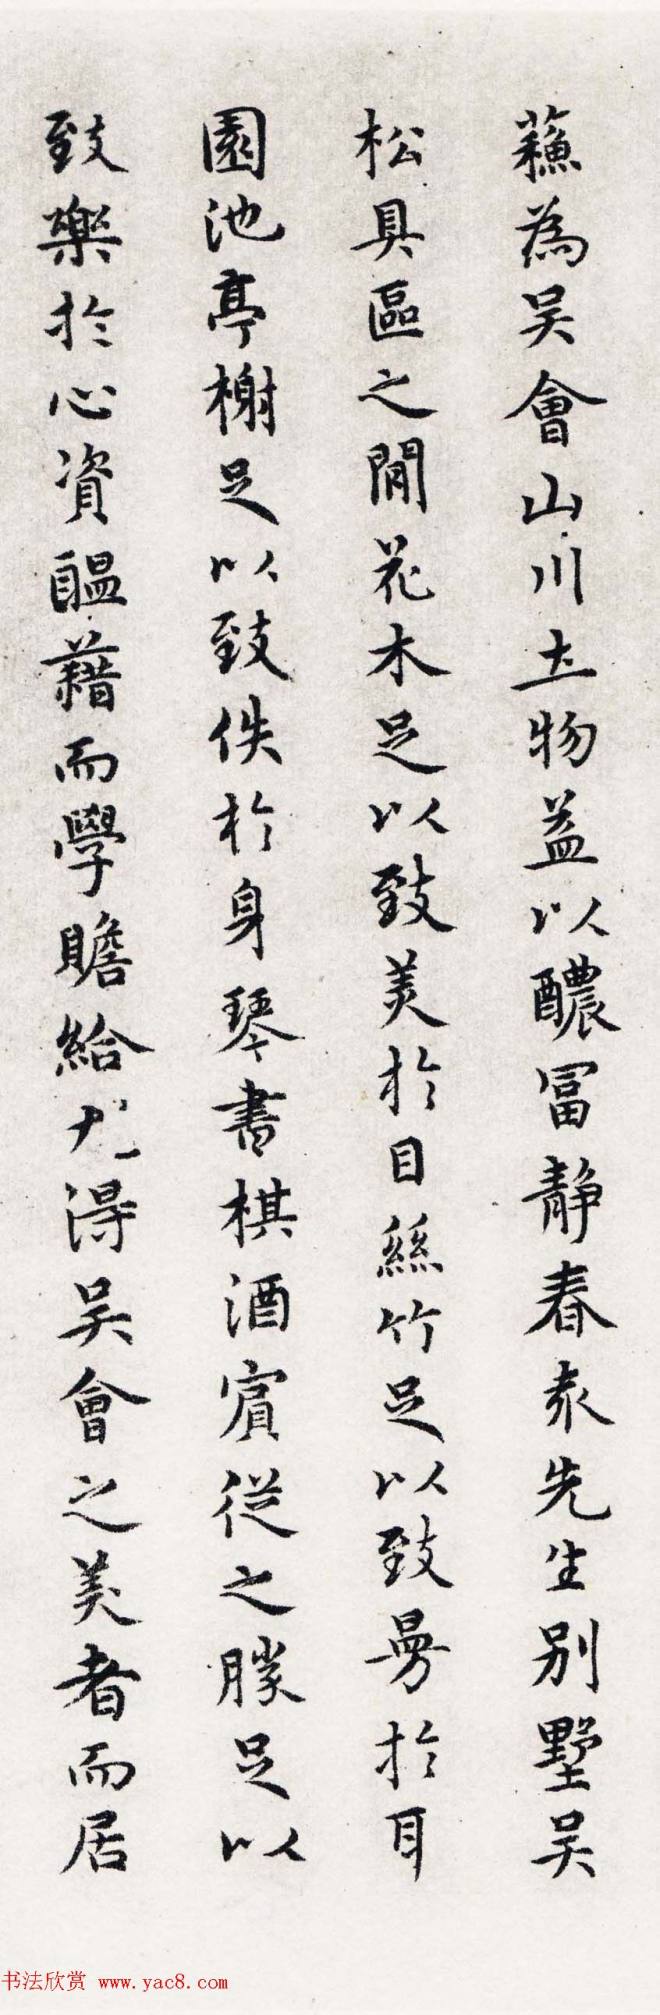 蘓為吴會山川土物益以醲冨静春袁先生别墅吴
松具區之閒花木足以致美於目絲竹足以致曼於耳
園池亭榭足以致佚於身琴書棋酒賔從之勝足以
致樂於心資醖藉而學贍給尤得吴會之美者而居
书法欣赏 www.yac8.com